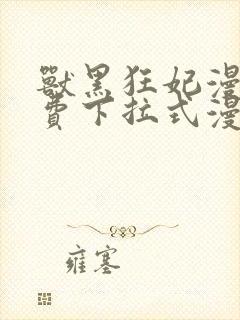 獸黑狂妃漫
費下拉式漫
雍塞